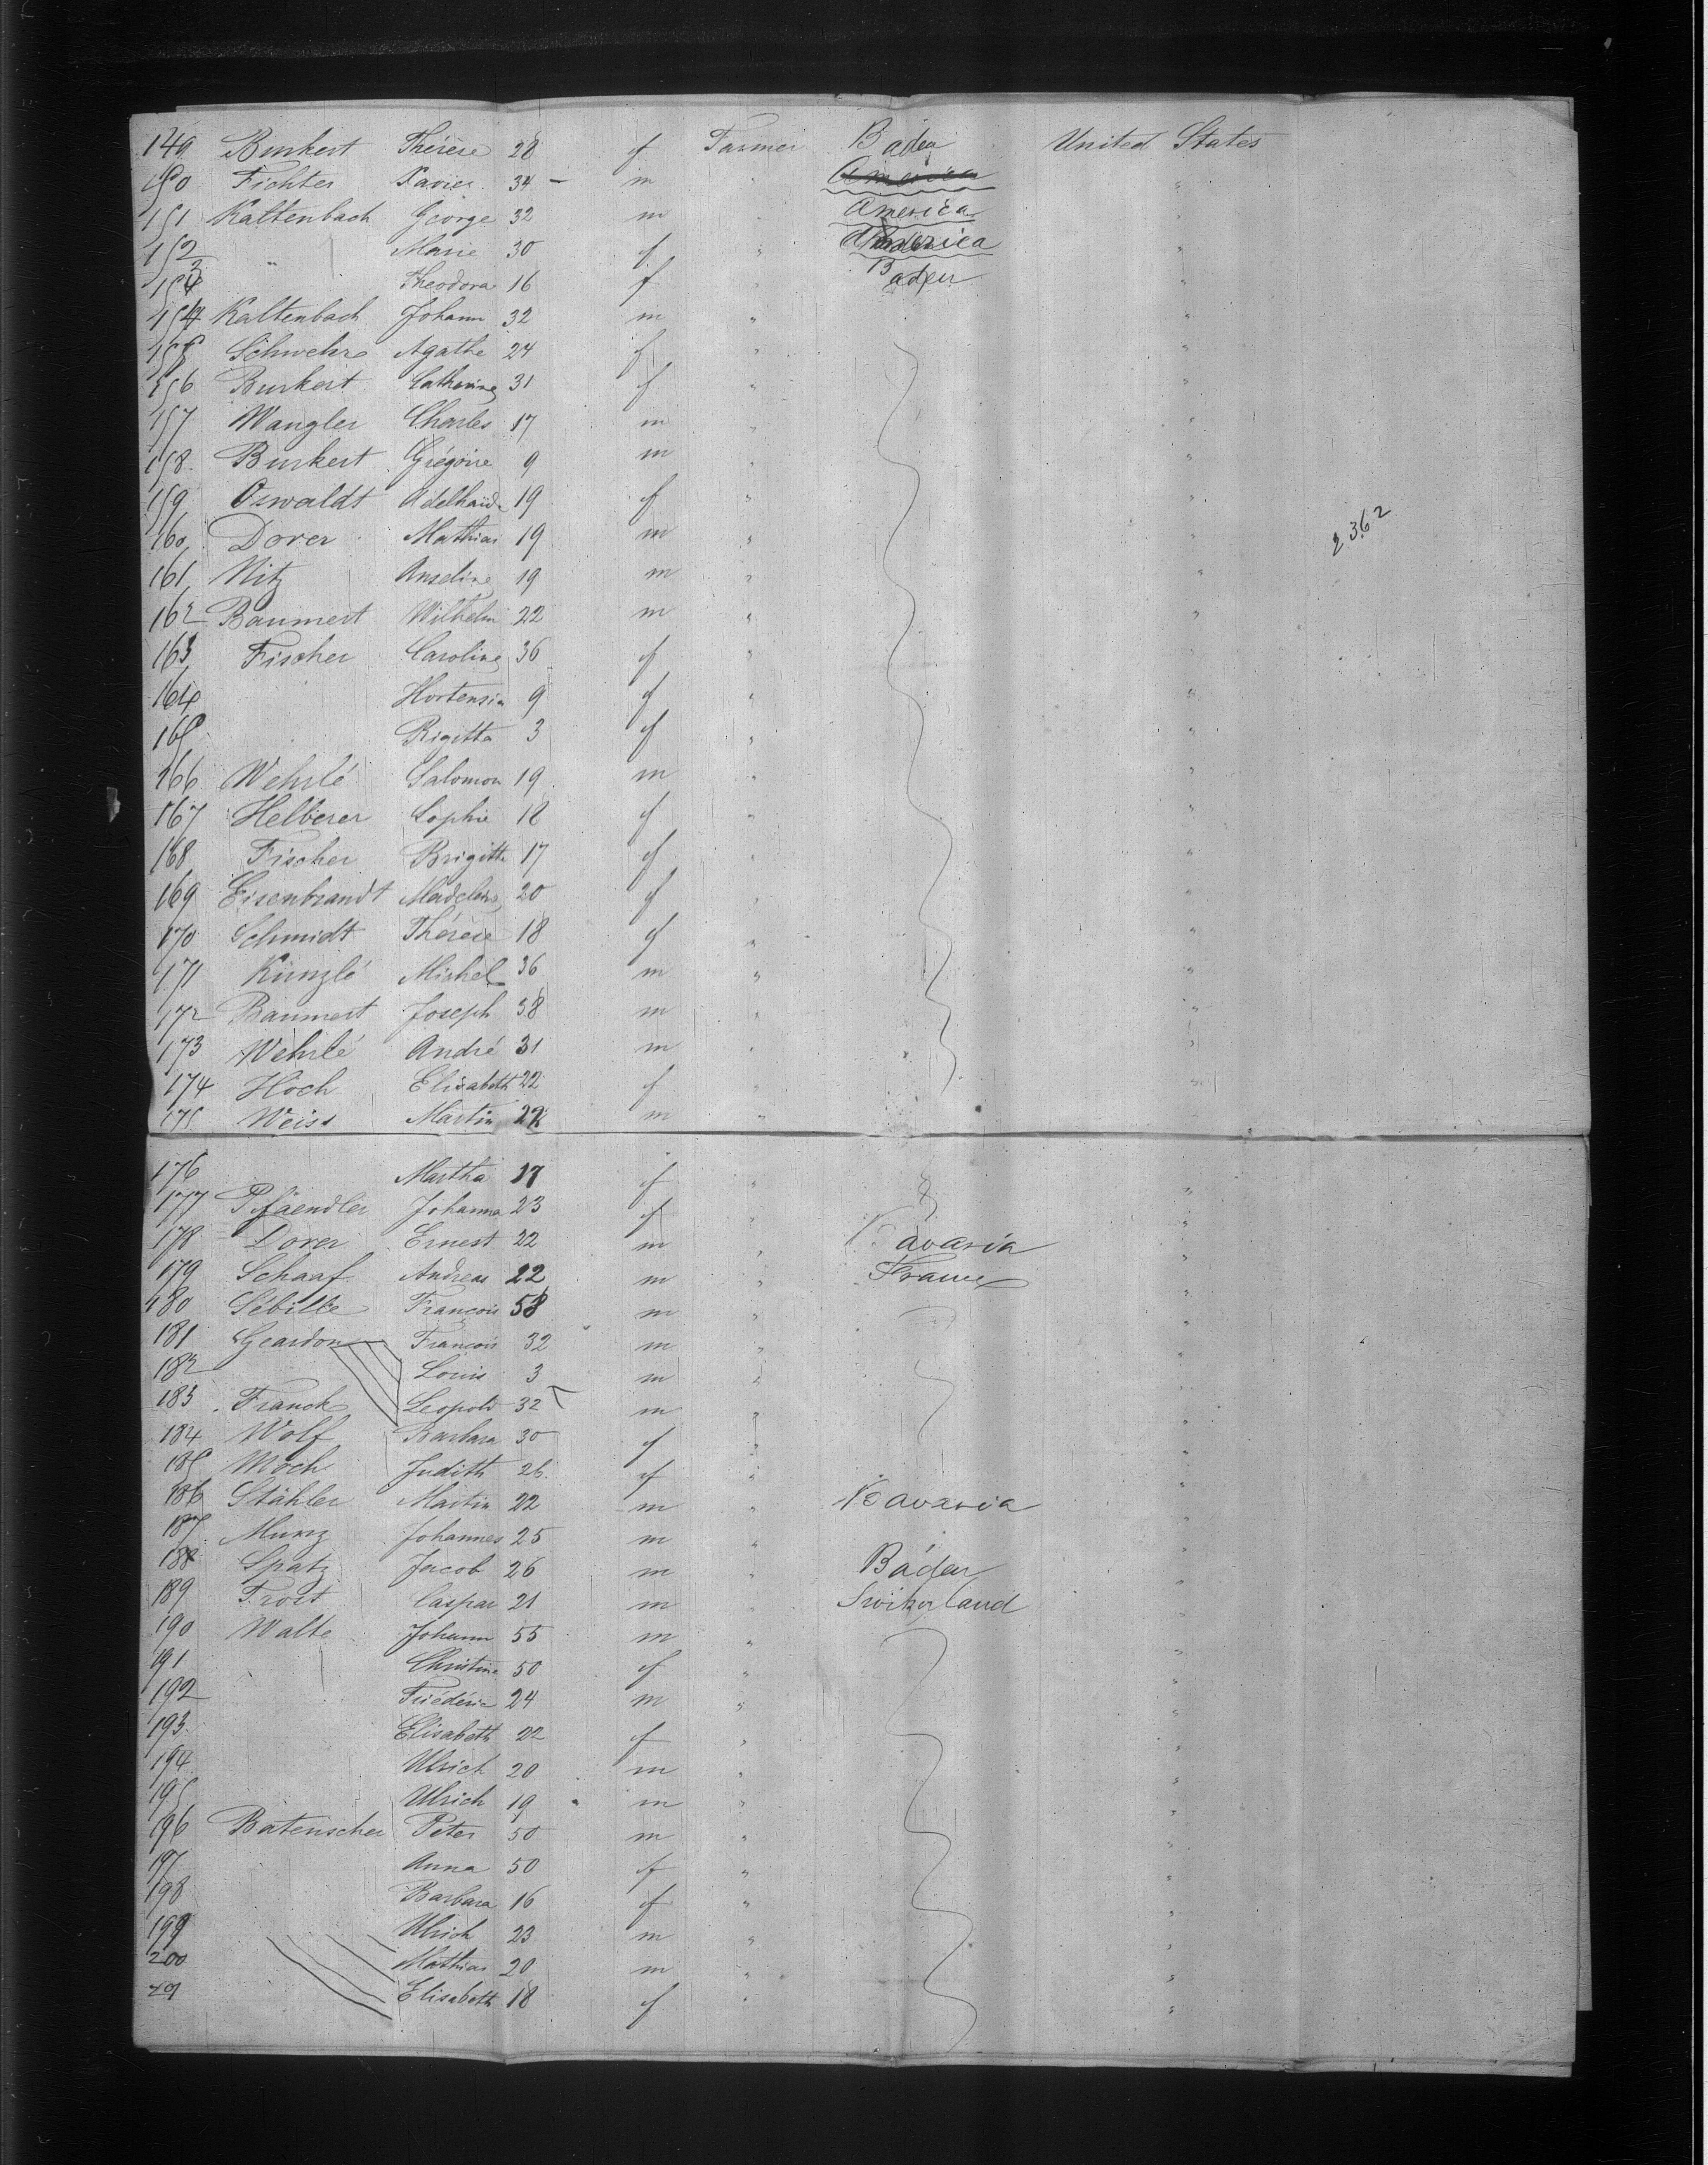 149 Burkert Thérèse 28 f Farmer Baden United States
150 Fichter Xavier 34 – m " America "
151 Kaltenbach George 32 m " America "
152 " Marie 30 f " America "
153 Theodora 16 f " Baden "
154 Kaltenbach Johann 32 m " "
155 Schwehr Agathe 24 f " "
156 Burkert Catherine 31 f " "
157 Wangler Charles 17 m " "
158 Burkert Grégoire 9 m " "
159 Oswaldt Adelhaid 19 f " "
160 Dorer Mathias 19 m " "
2362
161 Nitz Anseline 19 m " "
162 Baumert Wilhelm 22 m " "
163 Fischer Caroline 36 f " "
164 Hortensia 9 f " "
165 Rigitta 3 f " "
166 Wehrlé Salomon 19 m " "
167 Helberer Sophie 18 f " "
168 Fischer Brigitta 17 f " "
169 Eisenbrandt Madelaine 20 f " "
170 Schmidt Thérèse 18 f " "
171 Künzlé Michel 36 m " "
172 Baumert Joseph 38 m " "
173 Wehrlé André 31 m " "
174 Hoch Elisabeth 22 f " "
175 Weiss Martin m " "
176 Martha 17 f " "
177 Pfaendler Johanna 23 f " "
178 Dorer Ernest 22 m " Bavaria "
179 Schaaf Andreas 22 m " France "
180 Sébille François 58 m " "
181 Geardon François 32 m " "
182 Louis 3 m " "
183 Franck Leopold 32 m " "
184 Wolf Barbara 30 f " "
185 Moch Judith 26 f " "
186 Stähler Martin 22 m " Bavaria "
187 Munz Johannes 25 m " "
188 Spatz Jacob 26 m " Baden "
189 Trost Caspar 21 m " Switzerland "
190 Walte Johann 55 m " "
191 Christine 50 f " "
192 Frédéric 24 m " "
193 Elisabeth 22 f " "
194 Ulrich 20 m " "
195 Ulrich 19 m " "
196 Batenscher Peter 50 m " "
197 Anna 50 f " "
198 Barbara 16 f " "
199 Ulrich 23 m " "
200 Mathias 20 m " "
201 Elisabeth 18 f " "